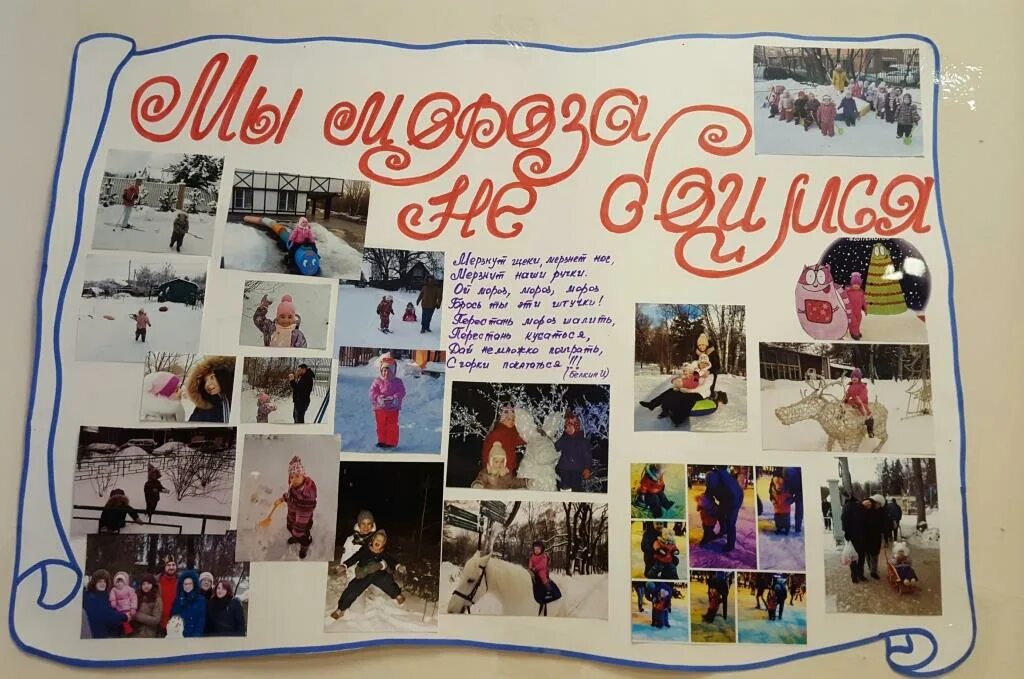 Мы мороза
не боимся
Мерзнут щеки, мерзнет нос,
Мерзнут наши ручки.
Ой мороз, мороз, мороз
Брось ты эти штучки!
Перестань мороз шалить,
Перестань кусаться,
Дай немножко поиграть,
С горки покататься!!!
(Белкин И)